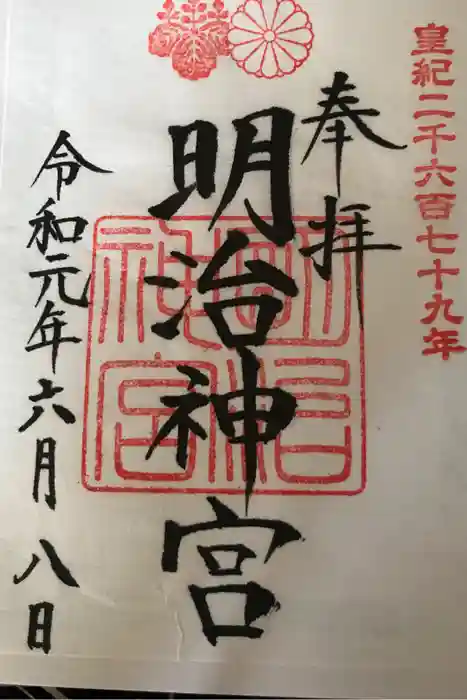 皇紀二千六百七十九年
奉拝
明治神宮
令和元年六月八日
明治神宮